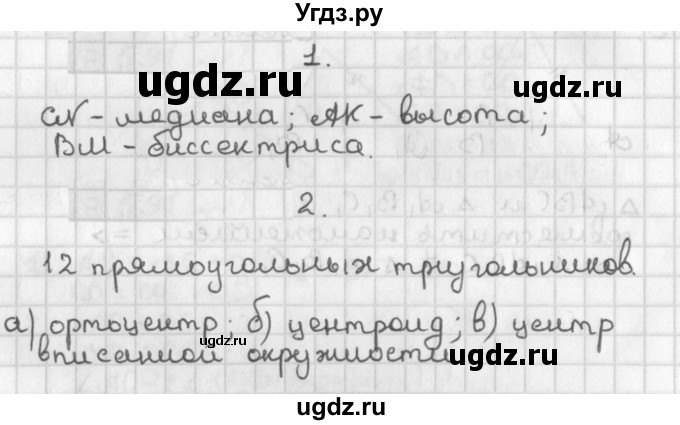 Угдз.ру
1.
ugdz.ru
ugdz.ru
CN - медиана; AK - высота;
BM - биссектриса.
2.
12 прямоугольных треугольников.
а) ортоцентр; б) центроид; в) центр
вписанной окружности
ugdz.ru
ugdz.ru